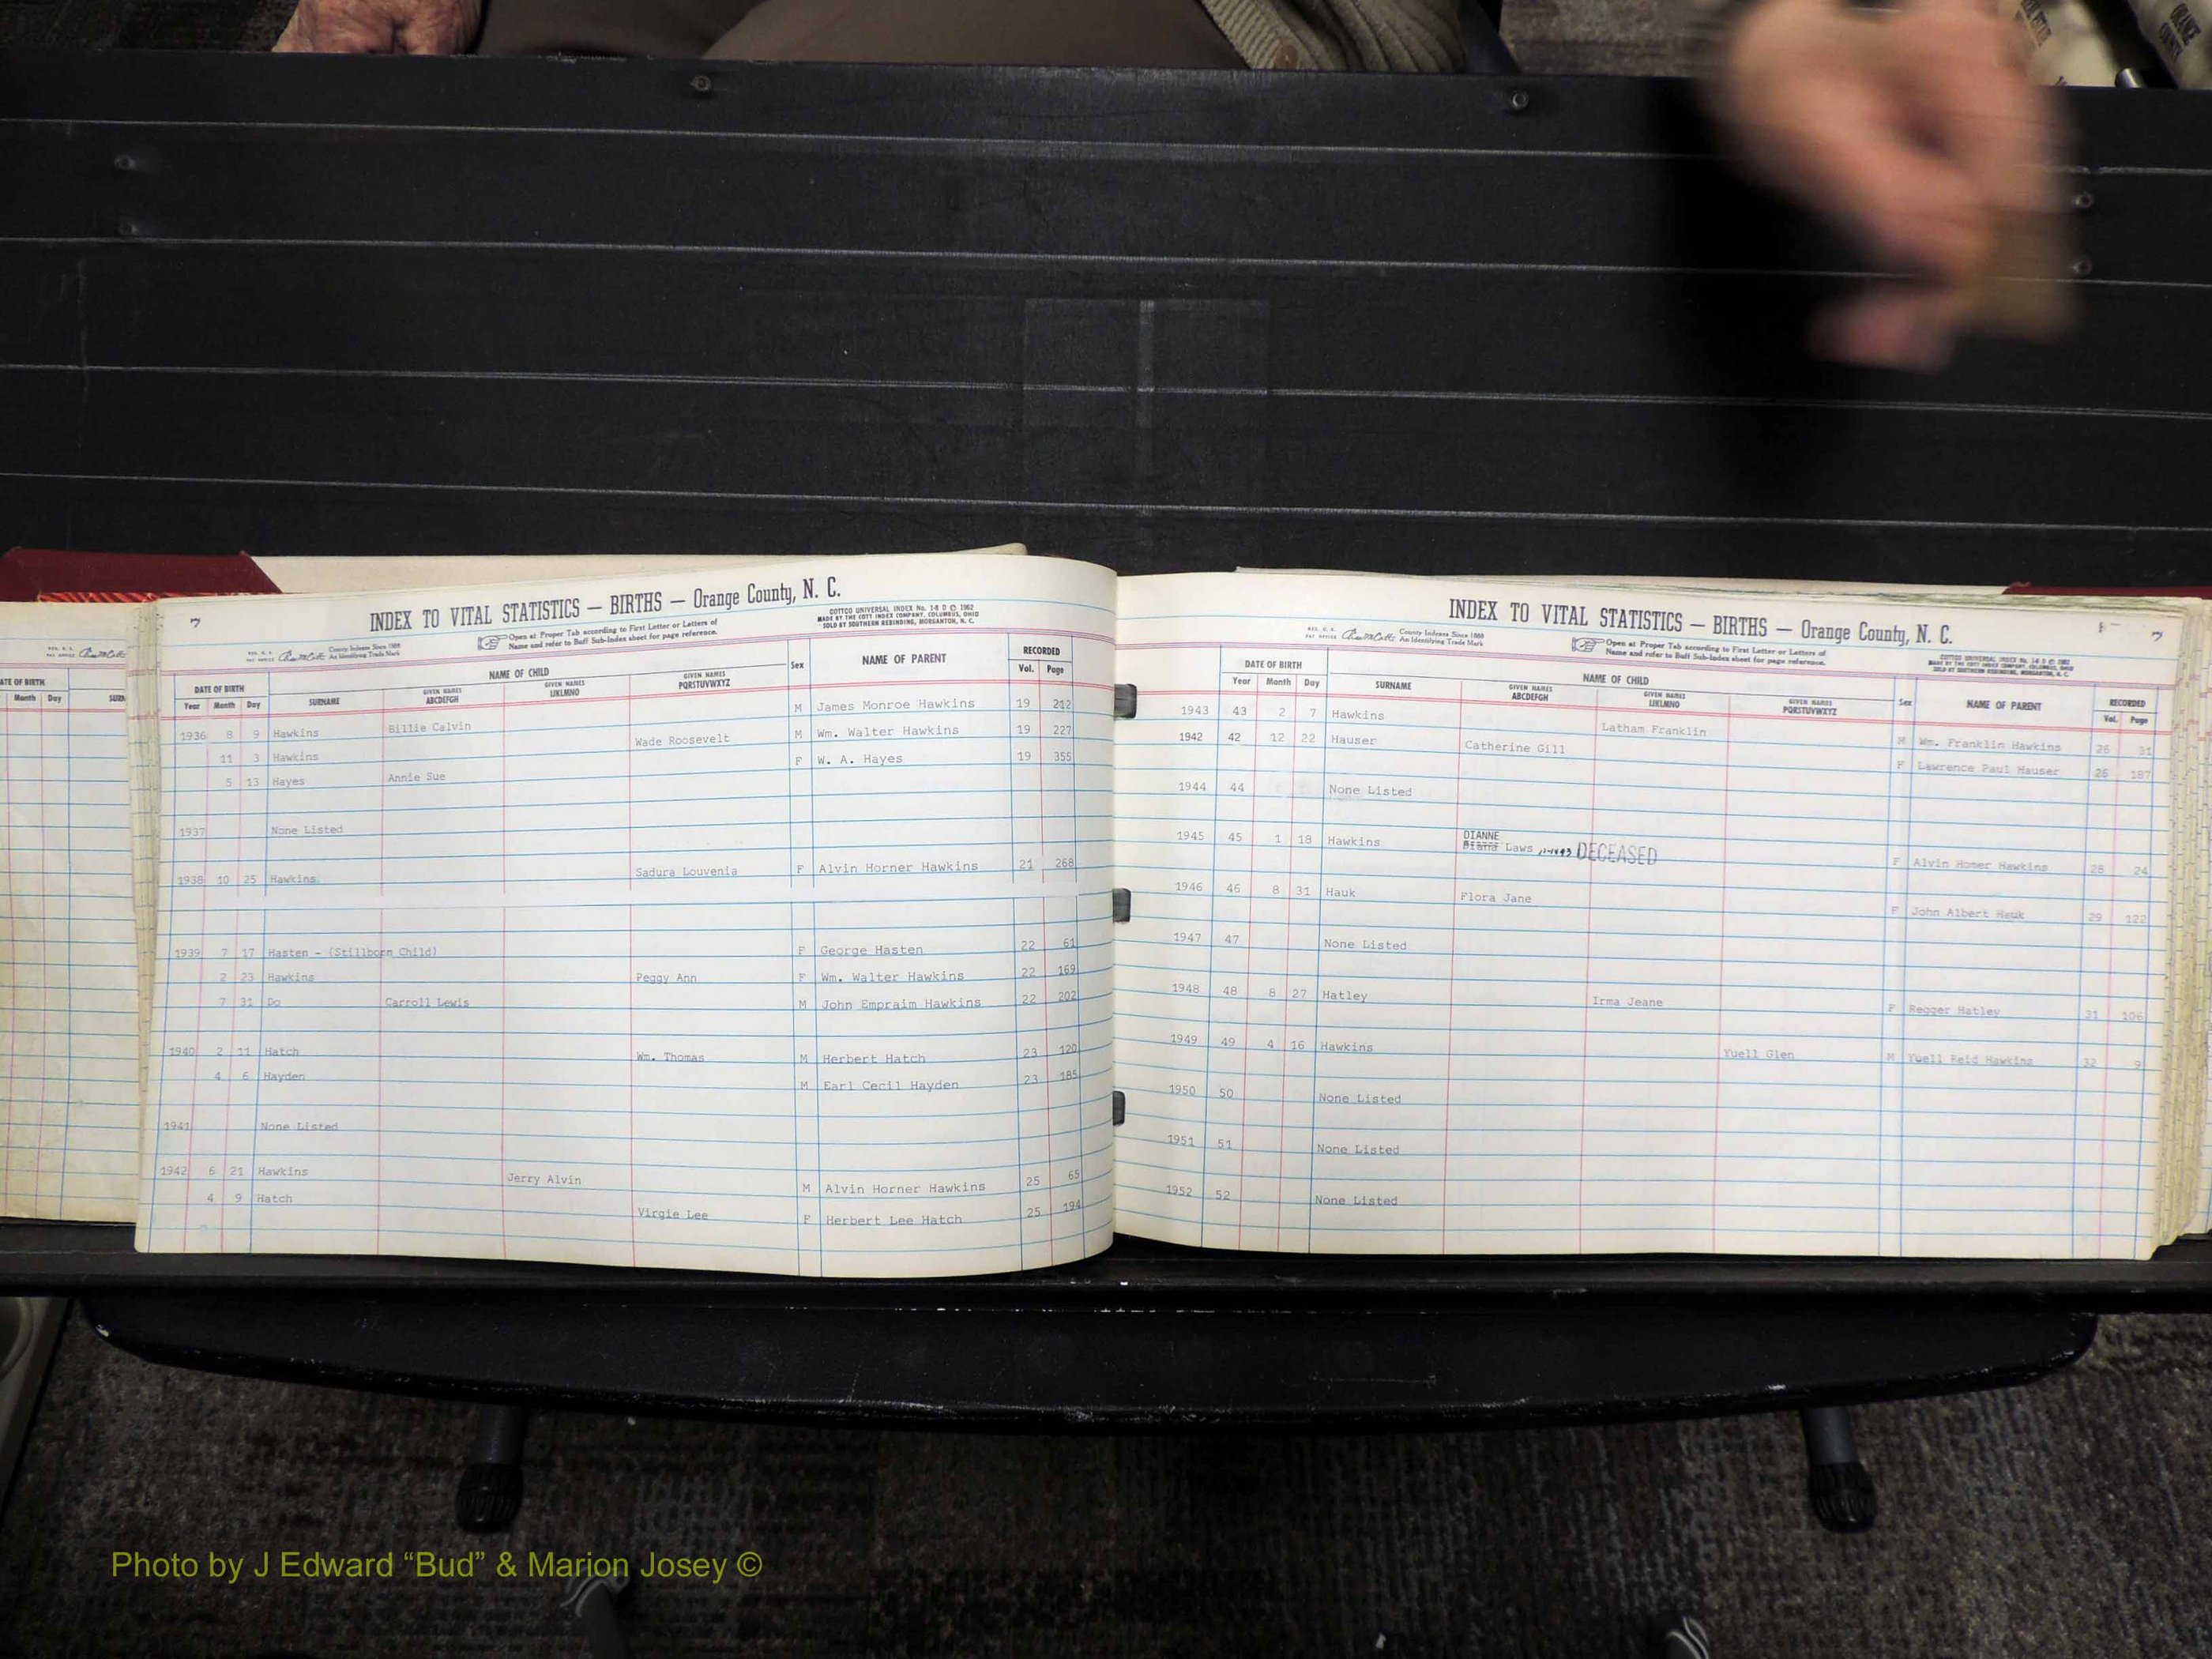 ORANGE
COUNTY
ATE OF BIRTH
Month Day
INDEX TO VITAL STATISTICS — BIRTHS — Orange County, N. C.
County Indexes Since 1888
An Identifying Trade Mark
Open at Proper Tab according to First Letter or Letters of
Name and refer to Buff Sub-Index sheet for page reference.
COTTCO UNIVERSAL INDEX No. 1-8 D © 1962
MADE BY THE COTT INDEX COMPANY, COLUMBUS, OHIO
SOLD BY SOUTHERN REBINDING, MORGANTON, N. C.
DATE OF BIRTH NAME OF CHILD Sex NAME OF PARENT RECORDED
Year Month Day SURNAME GIVEN NAMES ABCDEFGH GIVEN NAMES IJKLMNO GIVEN NAMES PQRSTUVWXYZ Vol. Page
1936 8 9 Hawkins Billie Calvin M James Monroe Hawkins 19 212
11 3 Hawkins Wade Roosevelt M Wm. Walter Hawkins 19 227
5 13 Hayes Annie Sue F W. A. Hayes 19 355
1937 None Listed
1938 10 25 Hawkins Sadura Louvenia F Alvin Horner Hawkins 21 268
1939 7 17 Hasten - (Stillborn Child) F George Hasten 22 61
2 23 Hawkins Peggy Ann F Wm. Walter Hawkins 22 169
7 31 Do Carroll Lewis M John Empraim Hawkins 22 202
1940 2 11 Hatch Wm. Thomas M Herbert Hatch 23 120
4 6 Hayden M Earl Cecil Hayden 23 185
1941 None Listed
1942 6 21 Hawkins Jerry Alvin M Alvin Horner Hawkins 25 65
4 9 Hatch Virgie Lee F Herbert Lee Hatch 25 194
INDEX TO VITAL STATISTICS — BIRTHS — Orange County, N. C.
County Indexes Since 1888
An Identifying Trade Mark
Open at Proper Tab according to First Letter or Letters of
Name and refer to Buff Sub-Index sheet for page reference.
DATE OF BIRTH NAME OF CHILD Sex NAME OF PARENT RECORDED
Year Month Day SURNAME GIVEN NAMES ABCDEFGH GIVEN NAMES IJKLMNO GIVEN NAMES PQRSTUVWXYZ Vol. Page
1943 43 2 7 Hawkins Latham Franklin M Wm. Franklin Hawkins 26 31
1942 42 12 22 Hauser Catherine Gill F Lawrence Paul Hauser 26 187
1944 44 None Listed
DIANNE
1945 45 1 18 Hawkins Diana Laws DECEASED F Alvin Homer Hawkins 28 24
1946 46 8 31 Hauk Flora Jane F John Albert Hauk 29 122
1947 47 None Listed
1948 48 8 27 Hatley Irma Jeane F Regger Hatley 31 106
1949 49 4 16 Hawkins Yuell Glen M Yuell Reid Hawkins 32 9
1950 50 None Listed
1951 51 None Listed
1952 52 None Listed
Photo by J Edward “Bud” & Marion Josey ©